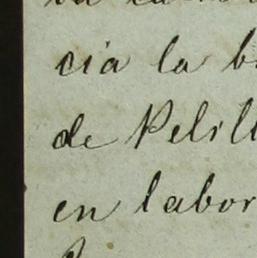 cia la b
de Pelill
en labor